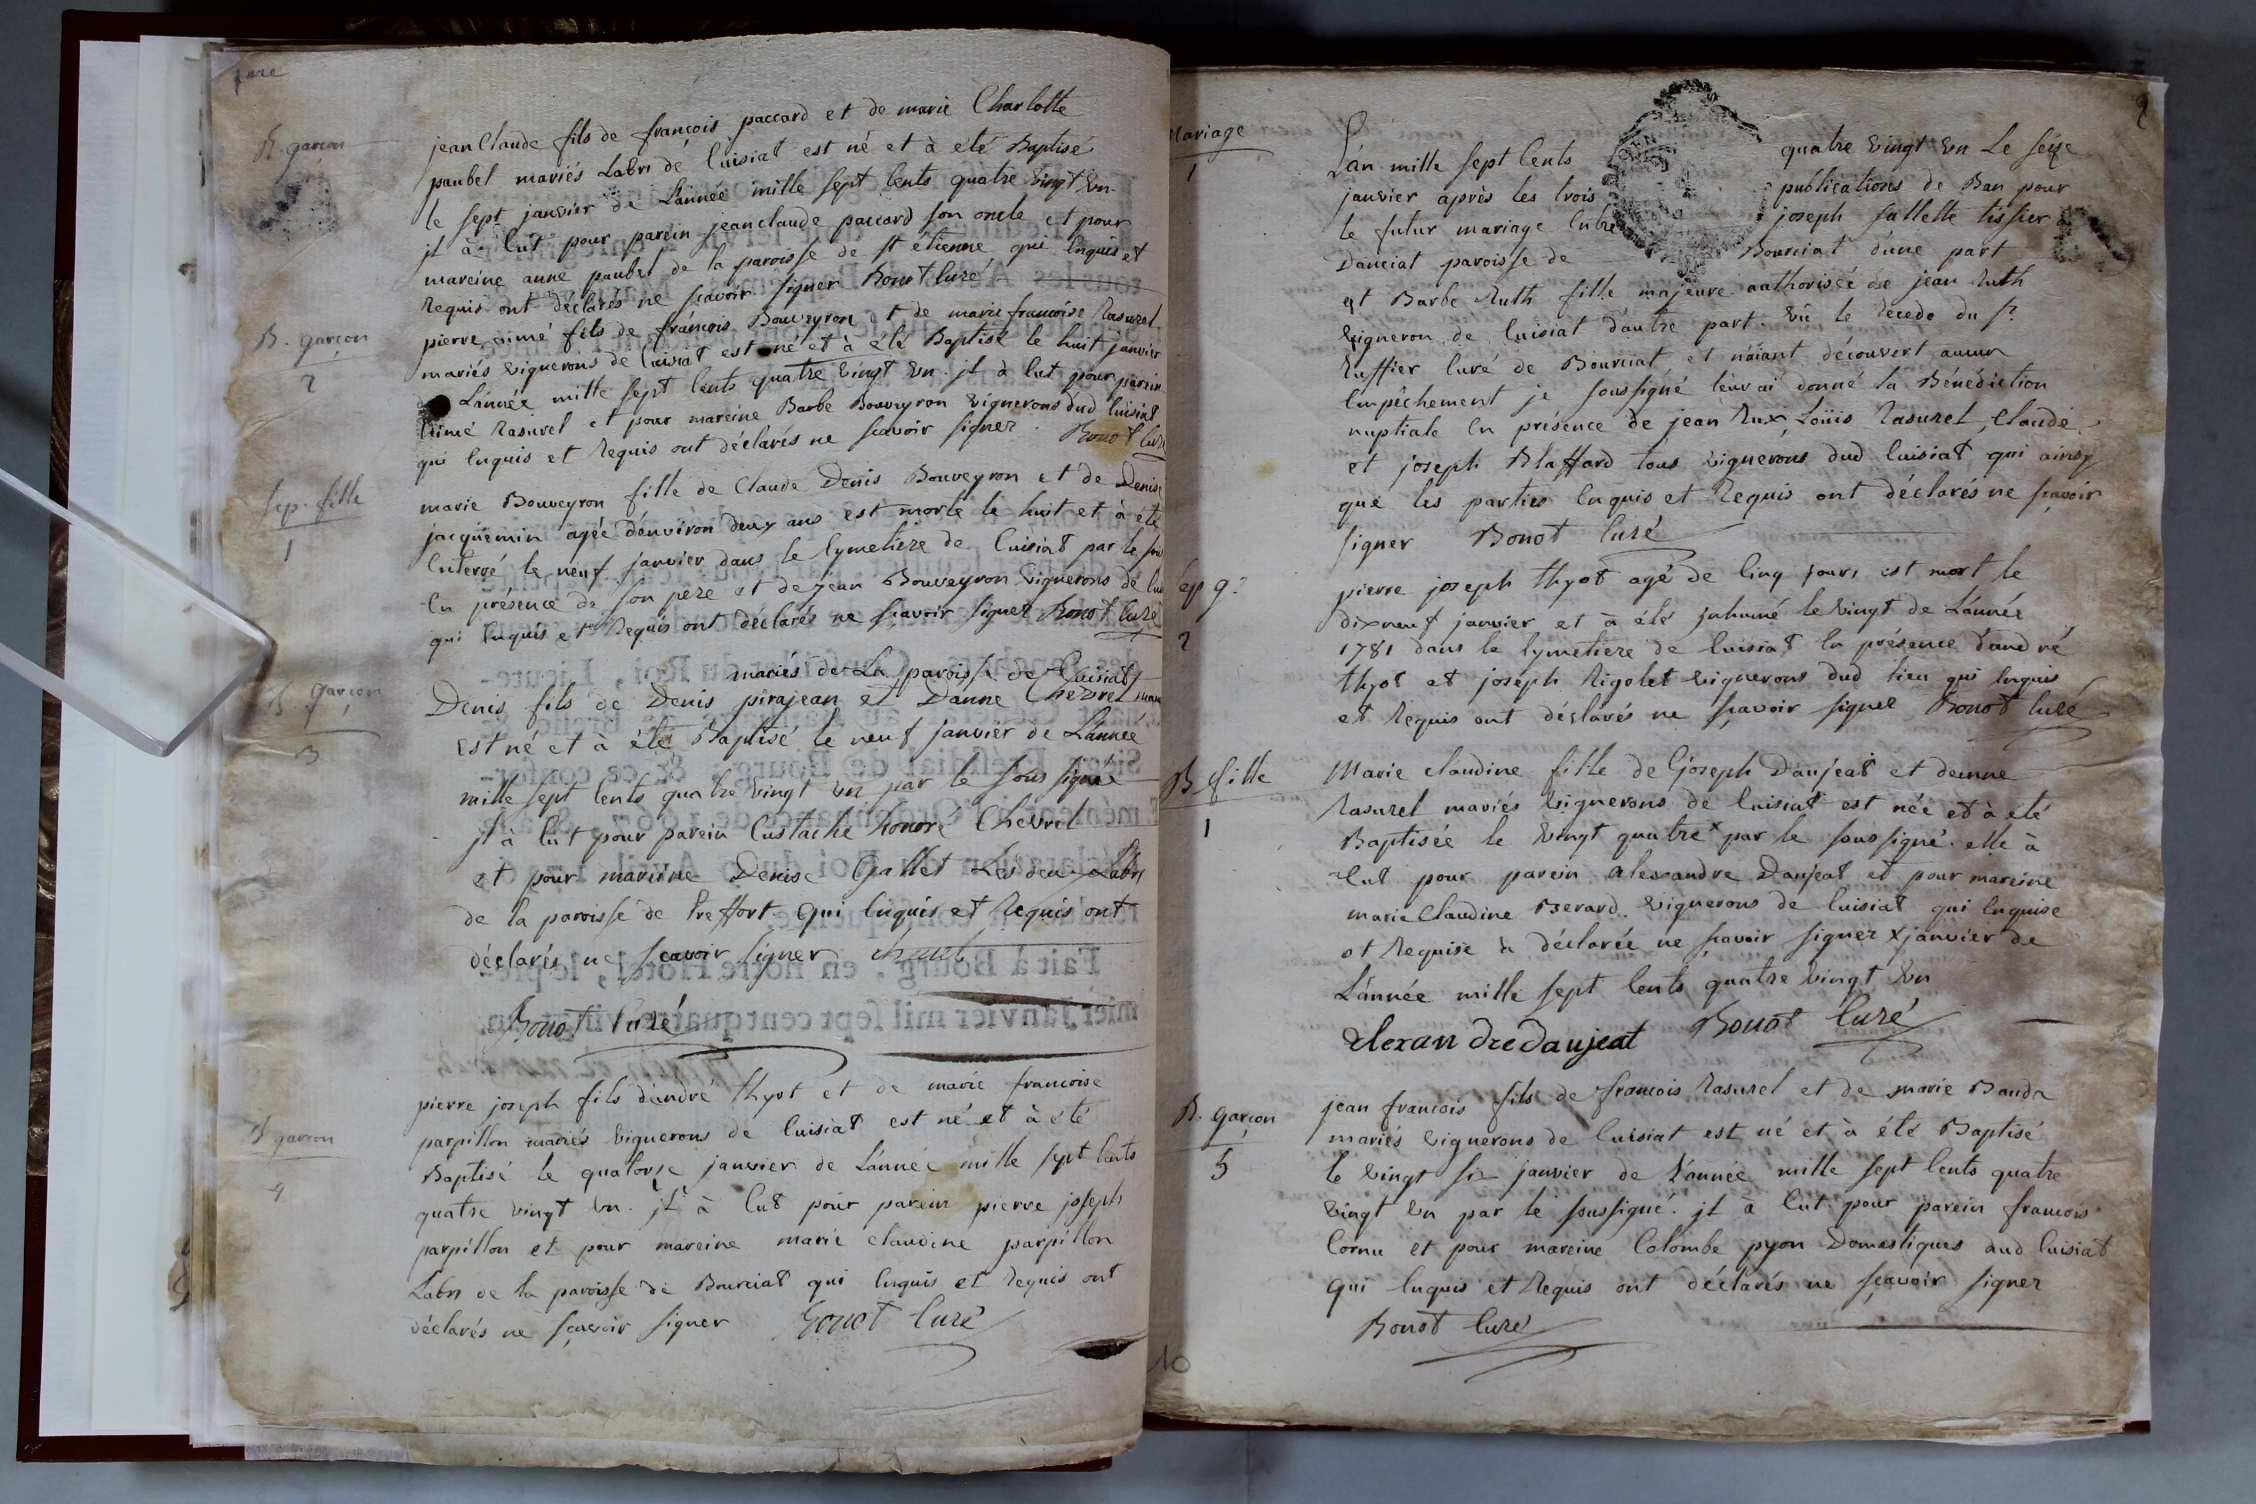 B. garçon
1
jean Claude fils de françois paccard et de marie Charlotte
paubel mariés Labrs de Cuisiat est né et à eté Baptisé
le sept janvier de L'année mille sept Cents quatre vingt un
jl à Eut pour parein jean claude paccard son oncle et pour
mareine anne paubel de la paroisse de st étienne qui Enquis et
Requis ont déclarés ne scavoir signer Bonot Curé
B. garçon
2
pierre aimé fils de françois Bouveyron et de marie francoise Rasurel
mariés vignerons de Cuisiat est né et à eté Baptisé le huit janvier
de L'année mille sept Cents quatre vingt un. jl à Eut pour parein
Aimé Rasurel et pour mareine Barbe Bouveyron vignerons dud Cuisiat
qui Enquis et Requis ont déclarés ne scavoir signer. Bonot Curé
sep. fille
1
marie Bouveyron fille de Claude Denis Bouveyron et de Denise
jacquemin agée d'environ deux ans est morte le huit et à été
Enterré le neuf janvier dans le Cymetiere de Cuisiat par le sous
En présence de son pere et de jean Bouveyron vignerons de Cui
qui Enquis et Requis ont déclarés ne scavoir signer Bonot Curé
B garçon
3
mariés de La paroisse de Cuisiat
Denis fils de Denis pirajean et D'anne Chevrel
Est né et à été Baptisé le neuf janvier de L'année
mille sept Cents quatre vingt un par le sous signé
jl à Eut pour parein Eustache honoré Chevrel
et pour mareine Denise Gallet Les deux Labrs
de la paroisse de treffort qui Enquis et Requis ont
déclarés ne scavoir signer
Bonot Curé
B garçon
4
pierre joseph fils d'andré thyot et de marie francoise
parpillon mariés vignerons de Cuisiat est né et à été
Baptisé le quatorze janvier de L'année mille sept Cents
quatre vingt un. jl à Eut pour parein pierre joseph
parpillon et pour mareine marie claudine parpillon
Labrs de la paroisse de Bourciat qui Enquis et Requis ont
déclarés ne scavoir signer Bonot Curé
2
Mariage
1
L'an mille sept Cents quatre vingt un Le seize
janvier après les trois publications de Ban pour
le futur mariage Entre joseph fallette tissier
Danciat paroisse de Bourciat d'une part
et Barbe Ruth fille majeure authorisée de jean Ruth
vigneron de Cuisiat d'autre part. vû le Recedo du sr
Ruffier Curé de Bourciat et n'aïant découvert aucun
Empêchement je soussigné leur ai donné la Bénédiction
nuptiale En présence de jean Rux, Loüis Rasurel, Claude
et joseph Blaffard tous vignerons dud Cuisiat qui ainsy
que les parties Enquis et Requis ont déclarés ne scavoir
signer Bonot Curé
sep g.
2
pierre joseph thyot agé de Cinq jours est mort le
dixneuf janvier et à été jnhumé le vingt de L'année
1781 dans le Cymetiere de Cuisiat En présence d'andré
thyot et joseph Rigolet vignerons dud lieu qui Enquis
et Requis ont déclarés ne scavoir signer Bonot Curé
B fille
1
Marie claudine fille de joseph Daujeat et d'enne
Rasurel mariés vignerons de Cuisiat est née et à eté
Baptisée le vingt quatre x par le soussigné. elle à
Eut pour parein alexandre Daujeat et pour mareine
marie Claudine Berard vignerons de Cuisiat qui Enquise
et Requise à déclarée ne scavoir signer x janvier de
L'année mille sept Cents quatre vingt un
Alexan dre Daujeat Bonot Curé
B. garçon
5
jean francois fils de francois Rasurel et de marie Banda
mariés vignerons de Cuisiat est né et à été Baptisé
le vingt six janvier de L'année mille sept Cents quatre
vingt un par le soussigné. jl à Eut pour parein francois
Cornu et pour mareine Colombe pyon Domestiques aud Cuisiat
qui Enquis et Requis ont déclarés ne scavoir signer
Bonot Curé
10